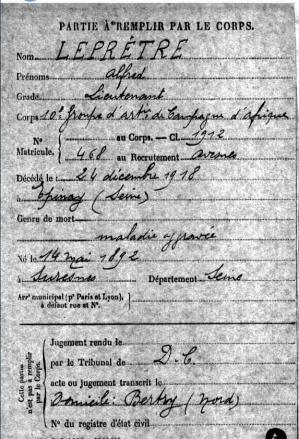 PARTIE À REMPLIR PAR LE CORPS.
Nom LEPRÊTRE
Prénoms Alfred
Grade Lieutenant
Corps 10e Groupe d'artie de Campagne d'Afrique
No Matricule.
au Corps. — Cl. 1912
468 au Recrutement Avesnes
Décédé le : 24 décembre 1918
à Epinay (Seine)
Genre de mort
maladie aggravée
Né le 14 mai 1892
à Suresnes Département Seine
Arrt municipal (pr Paris et Lyon),
à défaut rue et No.
Cette partie n'est pas à remplir par le Corps.
Jugement rendu le
par le Tribunal de D.C.
acte ou jugement transcrit le
Domicile: (Nord)
No du registre d'état civil